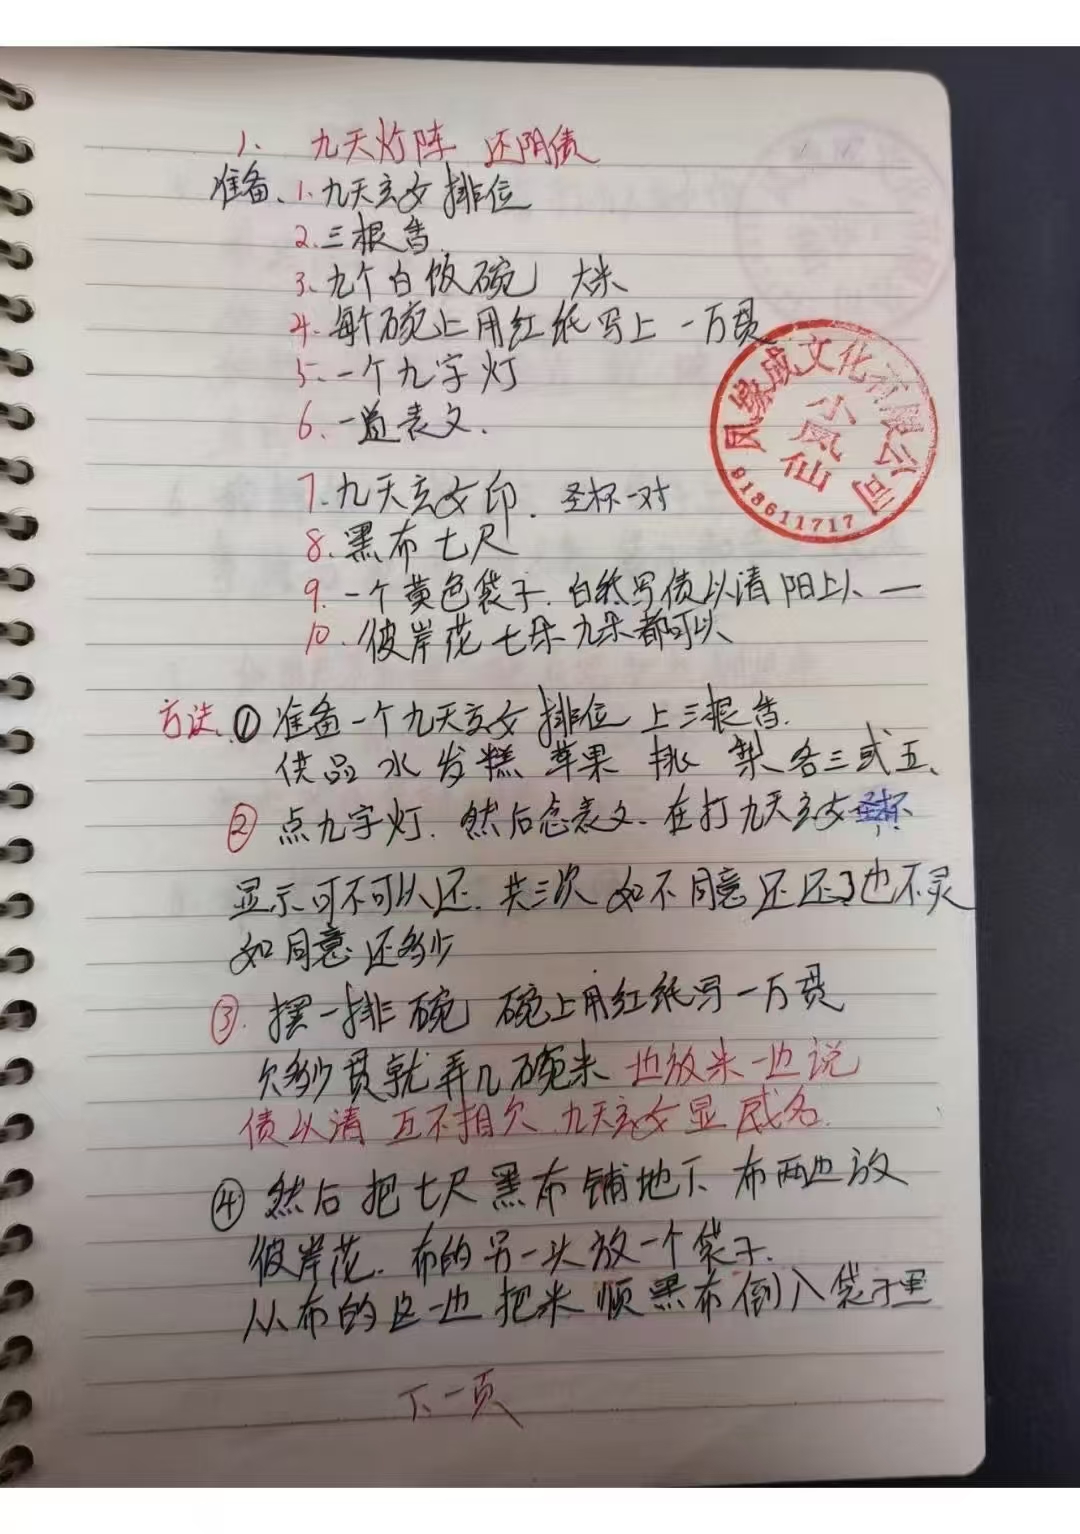 1、 九天灯阵 还阴债
准备、1.九天玄女 排位
2.三根香.
3.九个白饭碗 大米
4.每个碗上用红纸写上 一万贯
5.一个九字灯
6.一道表文.
7.九天玄女印. 圣杯一对
8.黑布七尺
9.一个黄色袋子.白纸写债以清 阳上以 —
10.彼岸花 七朵 九朵都可以
方法.①准备一个九天玄女 排位 上三根香.
供品 水 发糕 苹果 挑 梨 各三或五、
② 点九字灯. 然后念表文. 在打九天玄女圣杯
显示可不可以还. 共三次 如不同意还 还了也不灵
如同意 还多少
③. 摆一排碗 碗上用红纸写一万贯
欠多少贯就弄几碗米 边放米一边说
债以清 互不相欠.九天玄女显威名.
④ 然后 把七尺黑布铺地下 布两边放
彼岸花. 布的另一头放一个袋子.
从布的这一边 把米 顺黑布倒入袋子里
下一页
凤 威文化有限公司
小凤仙
918611717